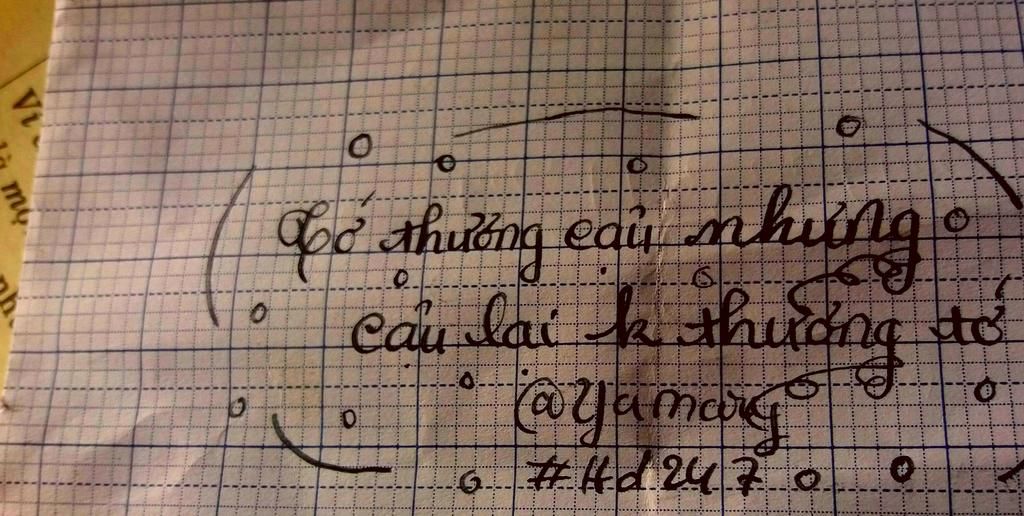 Tớ thương cậu nhưng
cậu lại k thương tớ
@Yamary
#Hd247
Vì
là mộ
nh